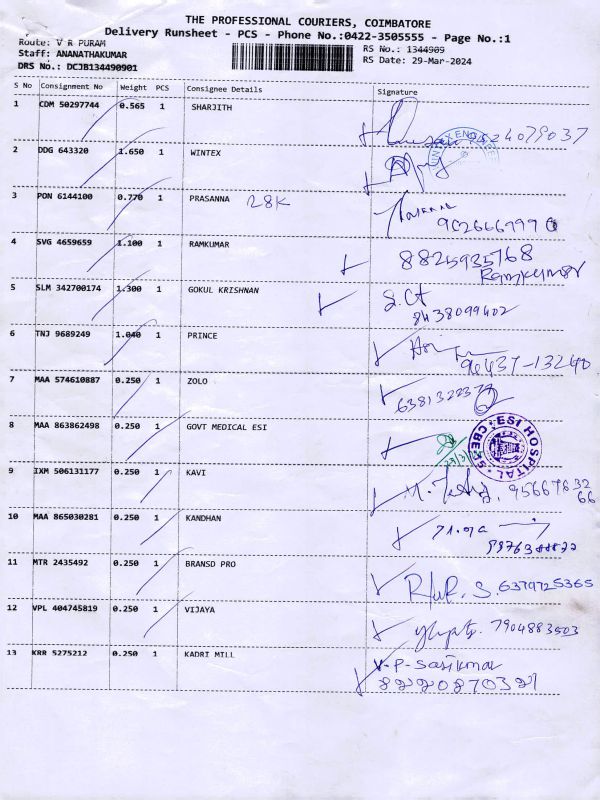 THE PROFESSIONAL COURIERS, COIMBATORE
Delivery Runsheet - PCS - Phone No.:0422-3505555 - Page No.:1
Route: V R PURAM
Staff: ANANATHAKUMAR
DRS No.: DCJB134490901
RS No.: 1344909
RS Date: 29-Mar-2024
S No Consignment No Weight PCS Consignee Details Signature
1 CDM 50297744 0.565 1 SHARJITH
2 DDG 643320 1.650 1 WINTEX
3 PON 6144100 0.770 1 PRASANNA 28K
4 SVG 4659659 1.100 1 RAMKUMAR 8825935768
Ramkumar
5 SLM 342700174 1.300 1 GOKUL KRISHNAN
8438099402
6 TNJ 9689249 1.040 1 PRINCE
96437-13240
7 MAA 574610887 0.250 1 ZOLO
8 MAA 863862498 0.250 1 GOVT MEDICAL ESI ESI HOSPITAL CBE
9 IXM 506131177 0.250 1 KAVI
10 MAA 865030281 0.250 1 KANDHAN
11 MTR 2435492 0.250 1 BRANSD PRO 6379725365
12 VPL 404745819 0.250 1 VIJAYA 7904883503
13 KRR 5275212 0.250 1 KADRI MILL V-P-Sasikmar
8220870321